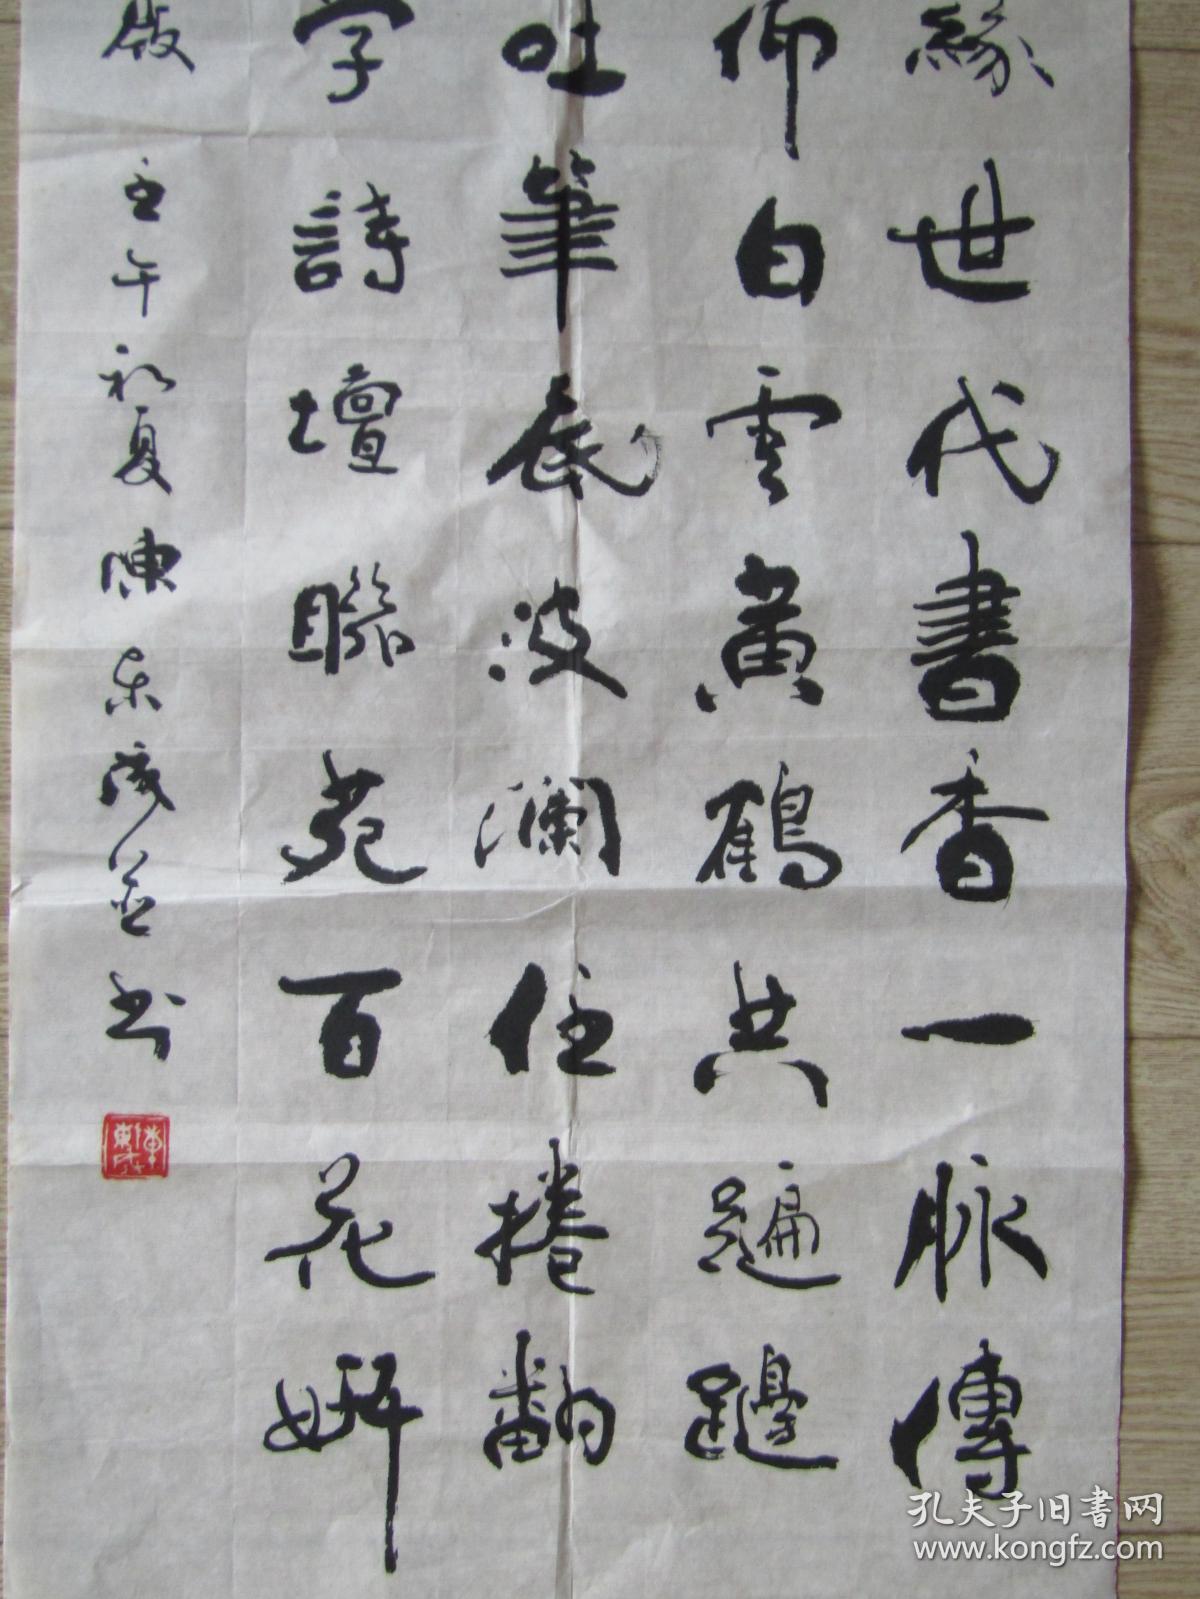 緣世代書香一脉傳
仰白雲黃鶴共遍邊
吐筆底波瀾任捲翻
字詩壇聯苑百花妍
壬午初夏陳 并书
孔夫子旧書网
www.kongfz.com